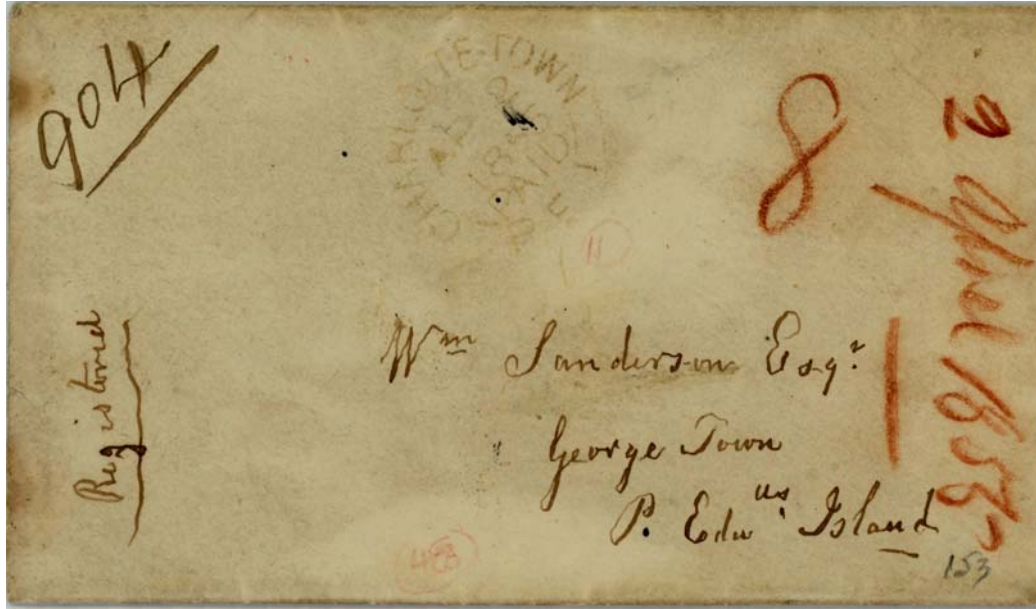 904
CHARLOTTE-TOWN
PAID
8
Registered
Wm Sanderson Esqr
George Town
P. Edwds Island
11
153